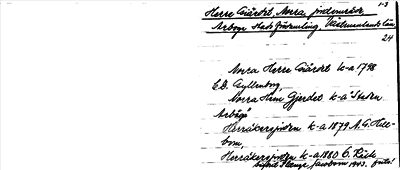 1-3
Herre Gärdet, Norra, jordområde
Arboga Stads församling, Västmanlands län
24
Norra Herre Gärdet k-a 1798
E.D. Gyllenborg,
Norra Herre Gjerdet k-a "Staden
Arboga"
Herråkersjorden k-a 1879 A.G. Hell-
bom,
Herråkersjorden k-a 1880 C.
1943.